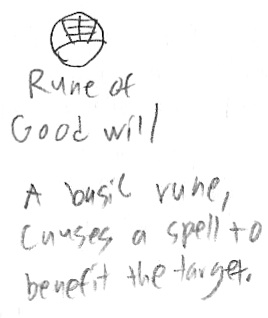 Rune of
Good will
A basic rune,
Causes a spell to
benefit the target.